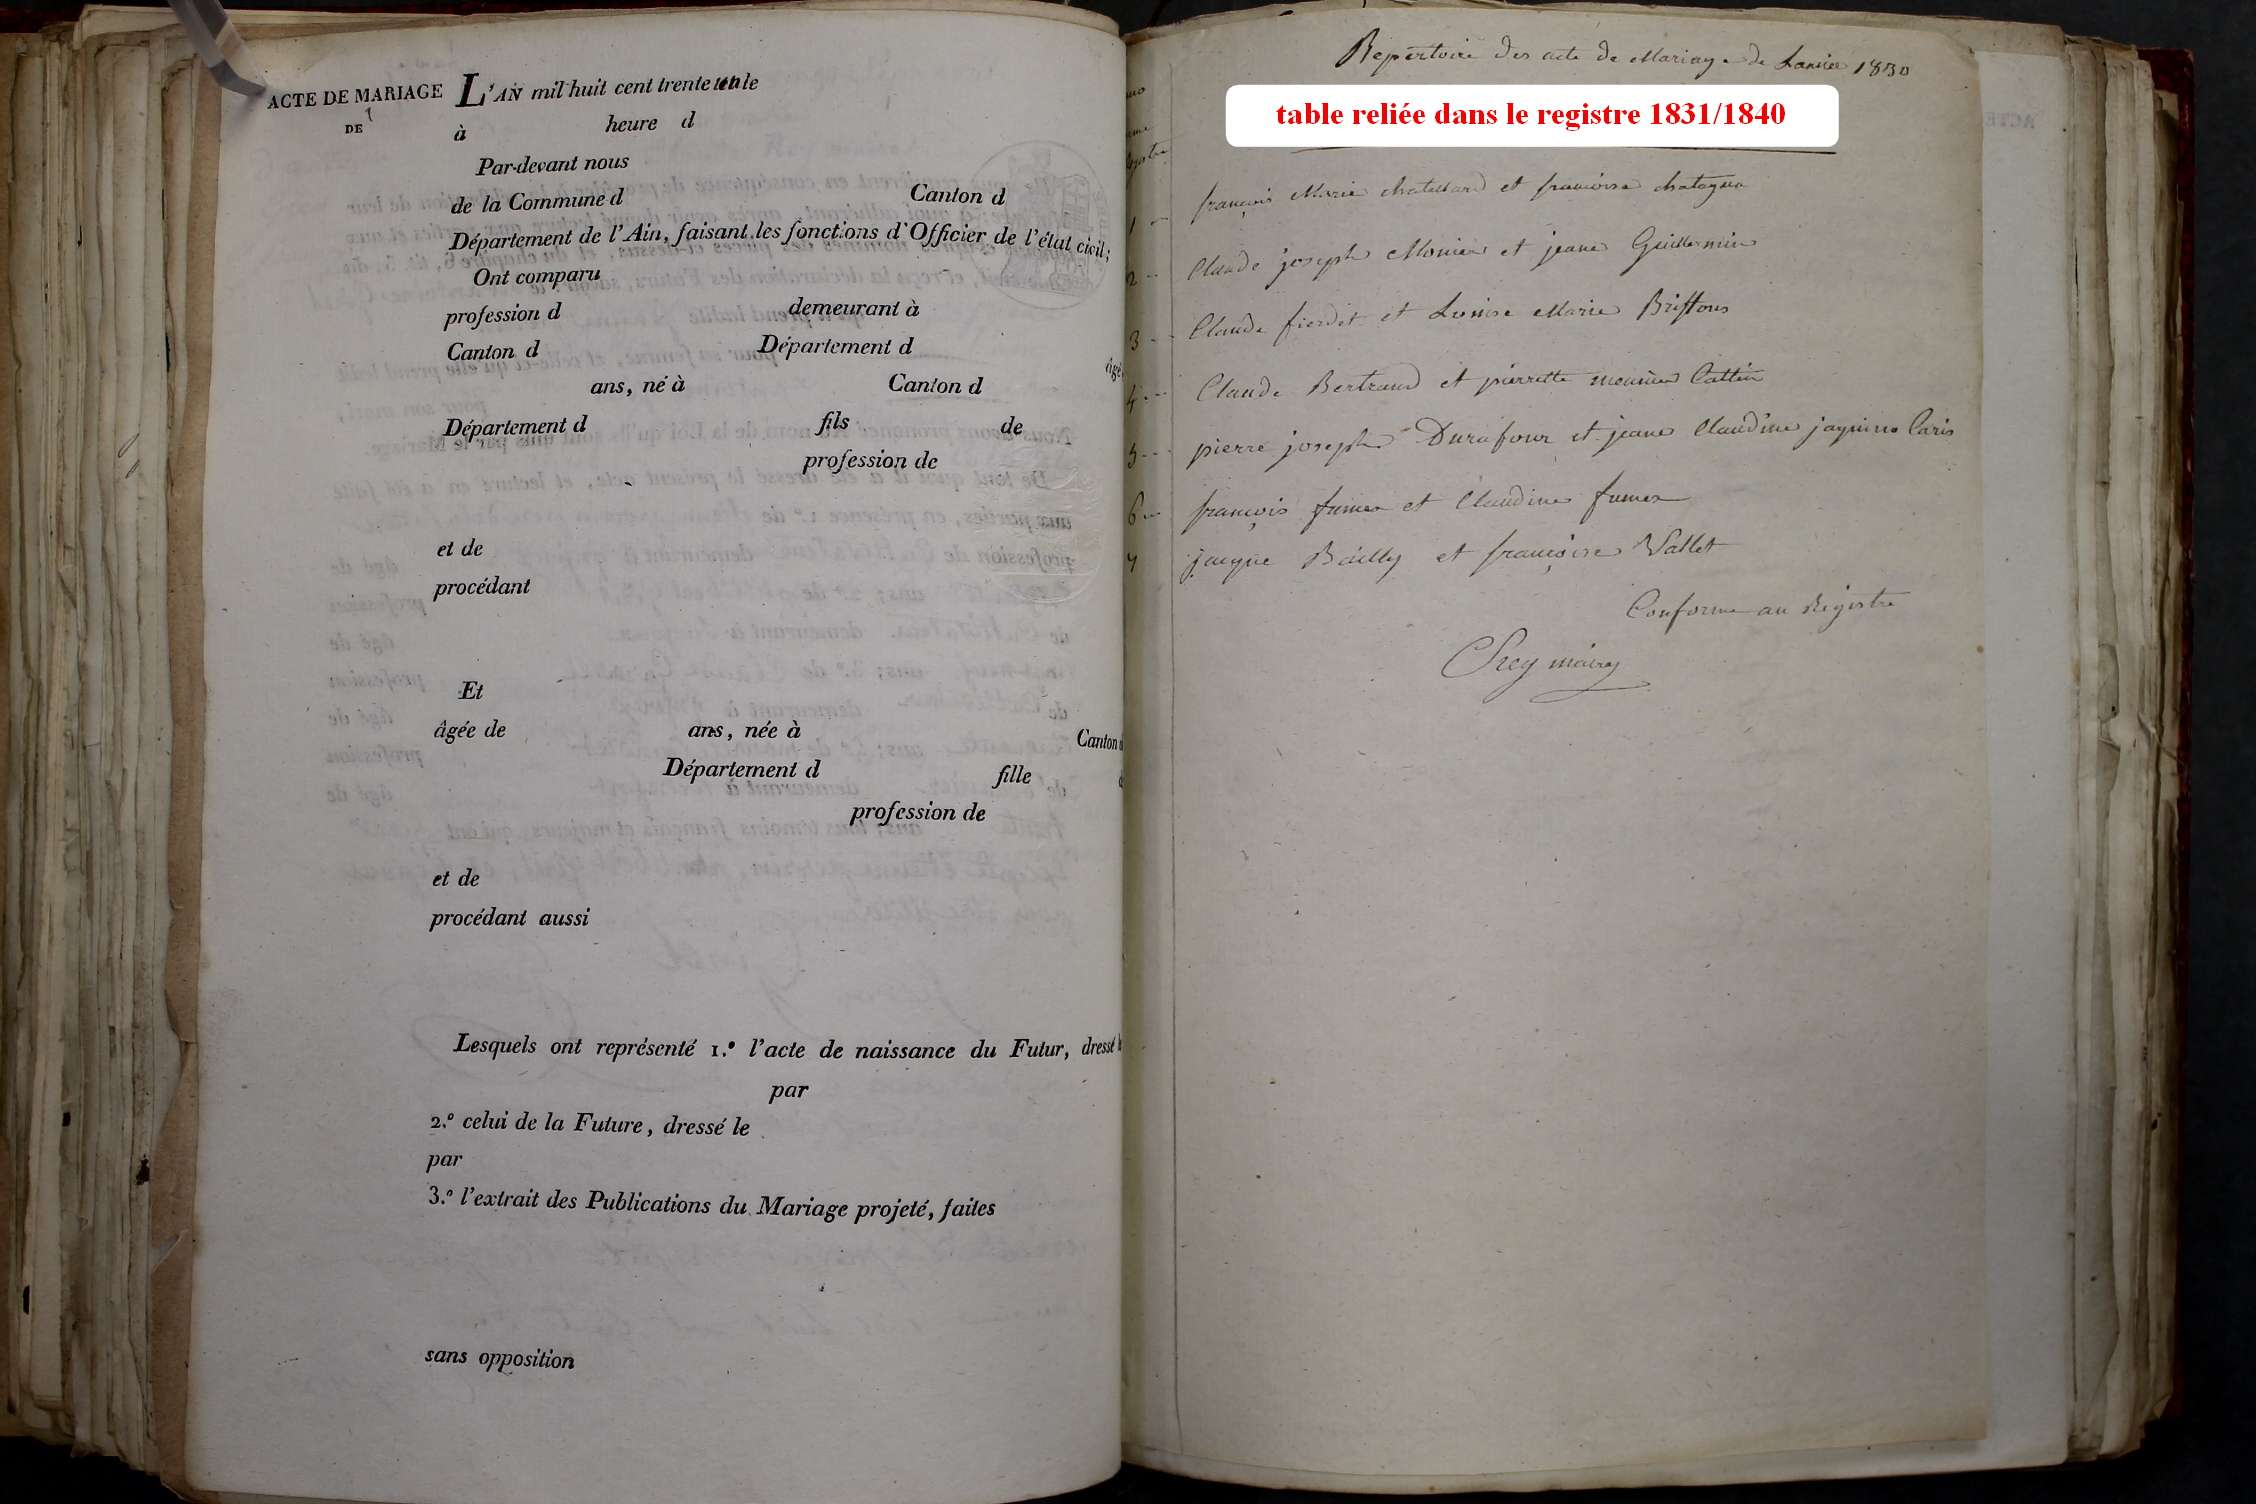 ACTE DE MARIAGE
DE
L'AN mil huit cent trente un le
à heure d
Par-devant nous
de la Commune d Canton d
Département de l'Ain, faisant les fonctions d'Officier de l'état civil;
Ont comparu
profession d demeurant à
Canton d Département d âgé
ans, né à Canton d
Département d fils de
profession de
et de
procédant
Et
âgée de ans, née à Canton d
Département d fille
profession de
et de
procédant aussi
Lesquels ont représenté 1.º l'acte de naissance du Futur, dressé
par
2.º celui de la Future, dressé le
par
3.º l'extrait des Publications du Mariage projeté, faites
sans opposition
Repertoire des acte de Mariage de Lannée 1830
table reliée dans le registre 1831/1840
1 françois Marie chatellard et françoise chatagna
2 Claude joseph Monier et jeane Guillermin
3 Claude fierdet et Louise Marie Briffons
4 Claude Bertrand et pierrette mounier Cattin
5 pierre joseph Durafour et jeane Claudine jaquino Caris
6 françois fumex et Claudine fumex
7 jaque Bailly et françoise Vallet
Conforme au Registre
Rey maire